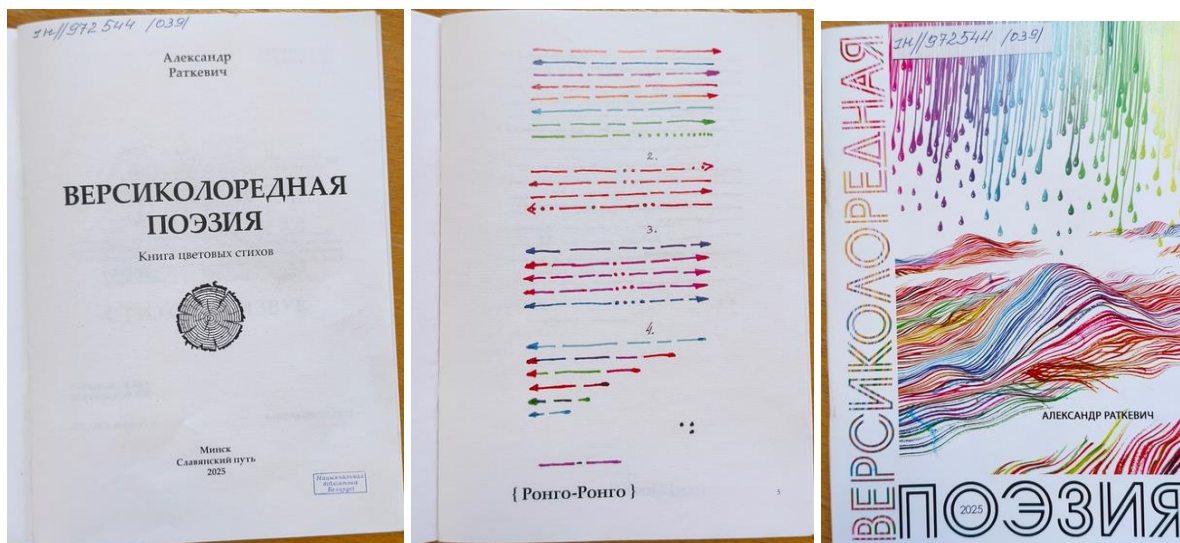 1Н//972544 /039/
Александр
Раткевич
ВЕРСИКОЛОРЕДНАЯ
ПОЭЗИЯ
Книга цветовых стихов
Минск
Славянский путь
2025
Национальная
библиотека
Беларуси
2.
3.
4.
{ Ронго-Ронго }
5
1Н//972544 /039/
ВЕРСИКОЛОРЕДНАЯ
АЛЕКСАНДР РАТКЕВИЧ
ПОЭЗИЯ
2025